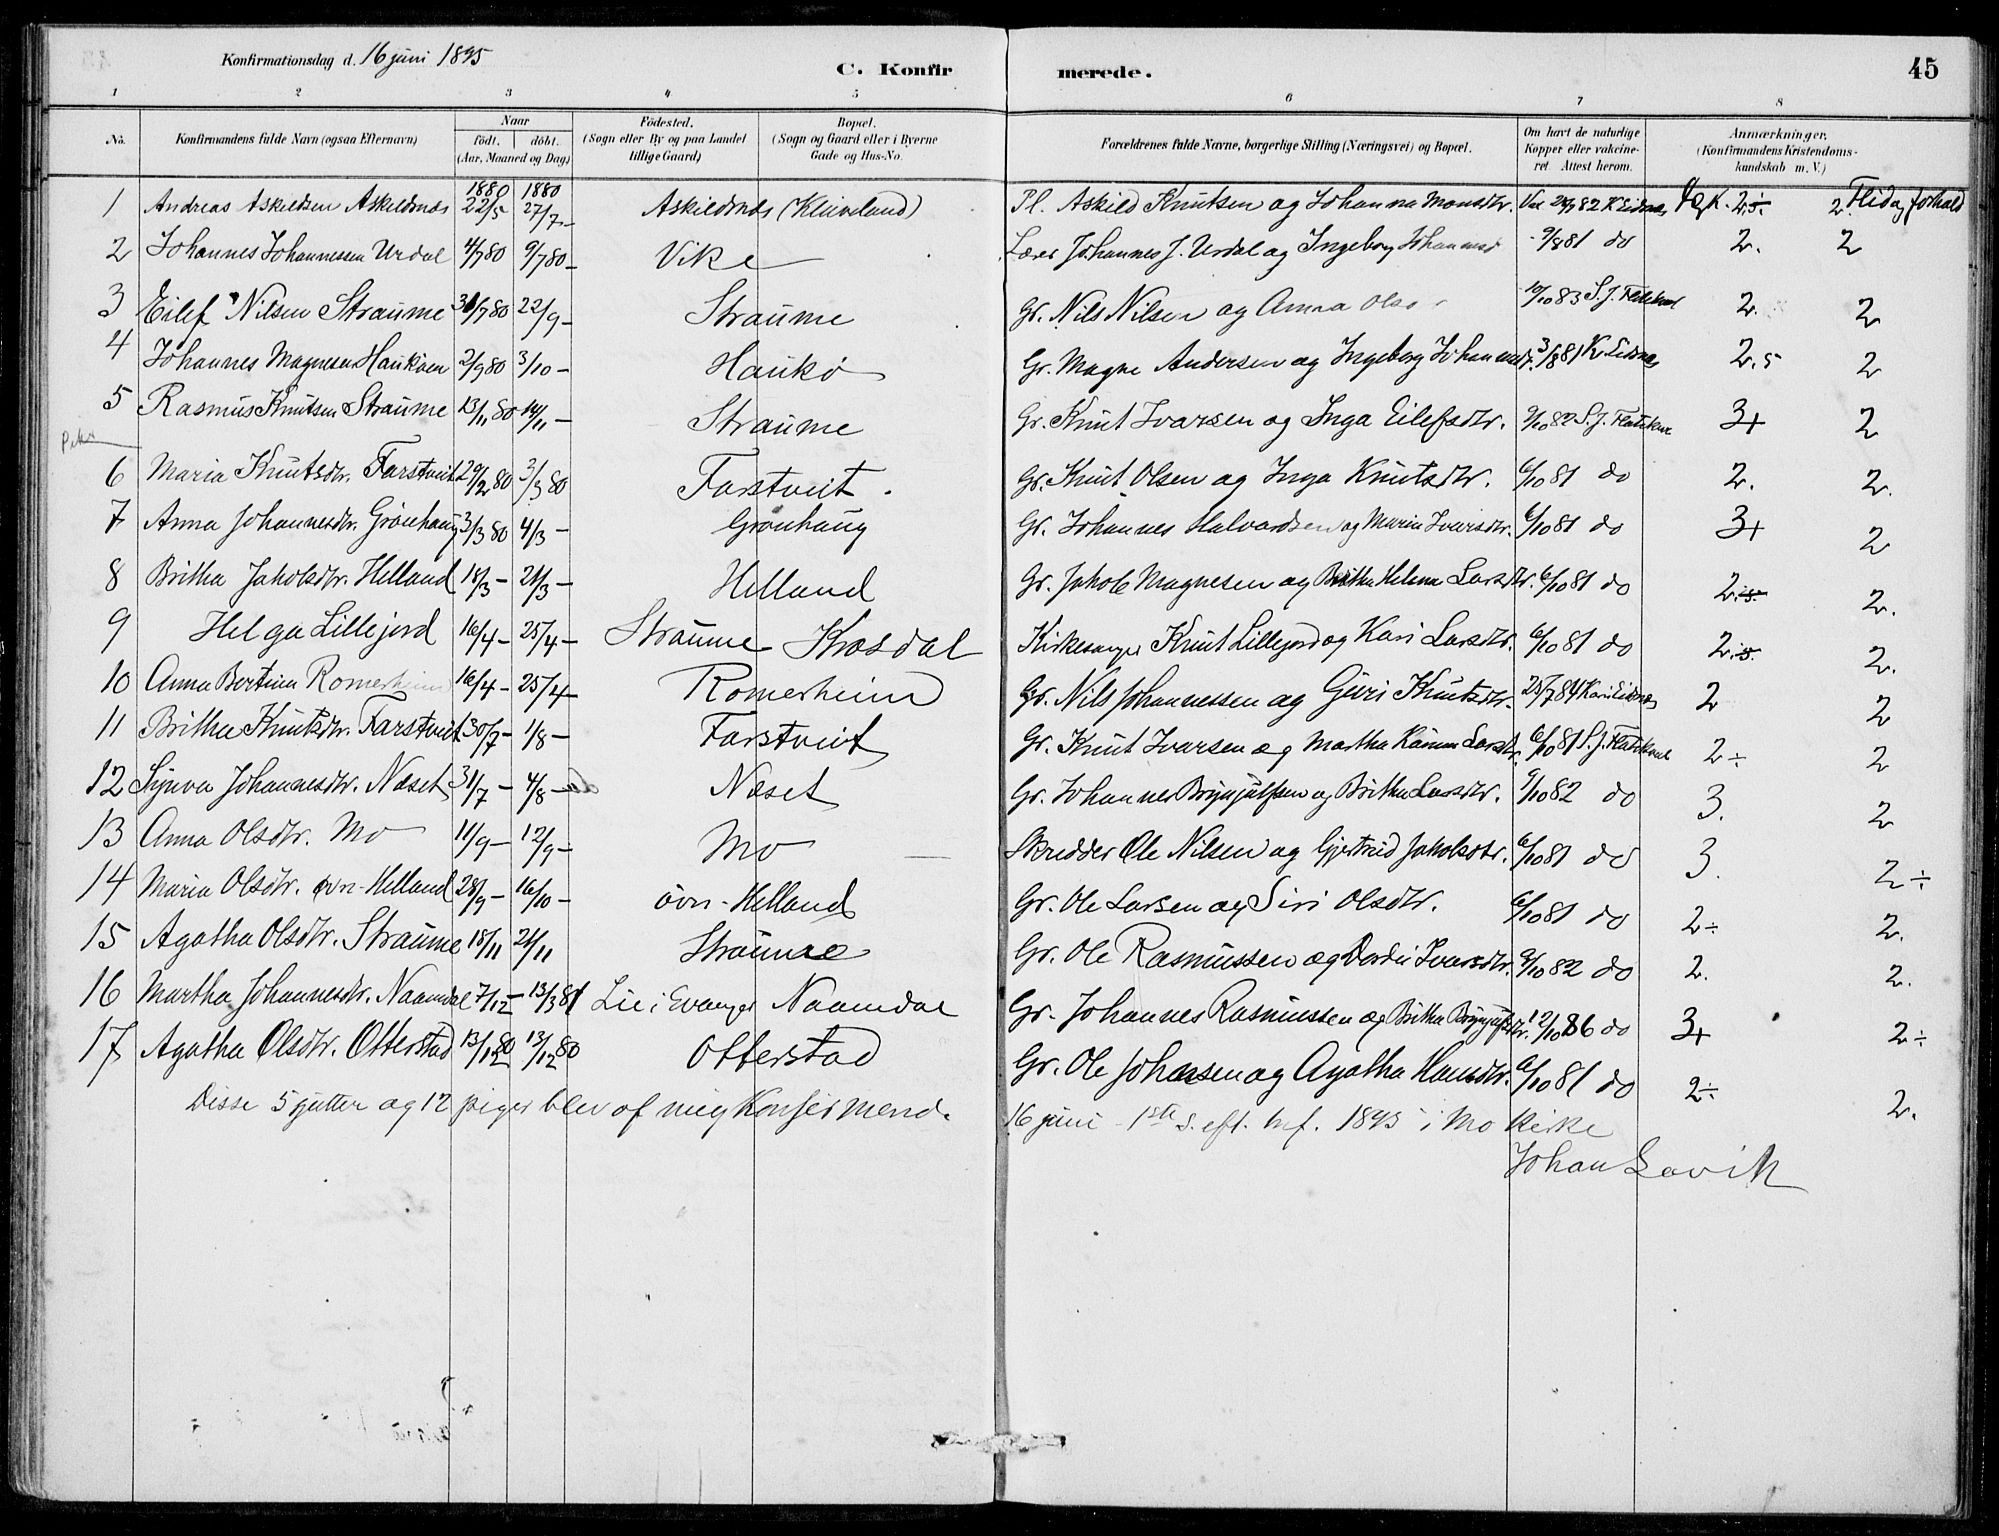 Konfirmationsdag d. 16 juni 1895
C. Konfir merede. 45
1 2 3 4 5 6 7 8
No. Konfirmandens fulde Navn (ogsaa Efternavn) Naar født. døbt. (Aar, Maaned og Dag) Fødested. (Sogn eller By og paa Landet tillige Gaard) Bopæl. (Sogn og Gaard eller i Byerne Gade og Hus-No. Forældrenes fulde Navne, borgerlige Stilling (Næringsvei) og Bopæl. Om havt de naturlige Kopper eller vakcineret. Attest herom. Anmærkninger, (Konfirmandens Kristendomskundskab m. V.)
1 Andreas Askildsen Askildnæs 1880 22/5 1880 27/7 - Askildnæs (Kleiveland) Pl. Askild Knutsen og Johanna Monsdtr. 82 K Eidnæs 2 2 Flid og forhold
2 Johannes Johannessen Urdal 4/7 80 9/7 80 - Vike Lærer Johannes J. Urdal og Ingeborg Johannesd 9/8 81 do 2. 2
3 Eilef Nilsen Straume 31/7 80 22/9 - Straume Gr. Nils Nilsen og Anna Olsd 10/10 83 S. J. 2. 2
4 Johannes Magnesen Haukøen 2/9 80 3/10 - Haukø Gr. Magne Andersen og Ingeborg Johannesd 3/8 81 K Eidnæs 2.5 2
5 Rasmus Knutsen Straume 13/11 80 14/11 - Straume Gr. Knut Ivarsen og Inga Eilefsdtr. 9/10 82 S. J. 3+ 2
6 Maria Knutsdtr. Farstveit 29/2 80 3/3 80 Farstveit. Gr. Knut Olsen og Inga Knutsdtr. 6/10 81 do 2. 2.
7 Anna Johannesdtr. Grønhaug 3/3 80 4/3 - Grønhaug Gr. Johannes Halvardsen og Maria Ivarsdtr. 6/10 81 do 3+ 2
8 Britha Jakobsdtr. Helland 18/3 - 21/3 - Helland Gr. Jakob Magnesen og Britha Helena Larsdtr. 6/10 81 do 2. 2.
9 Helga Lillejord 16/4 - 25/4 - Straume Krosdal Kirkesanger Knut Lillejord og Kari Larsdtr. 6/10 81 do 2. 2.
10 Anna Bertina Romerheim 16/4 - 25/4 - Romerheim Gr. Nils Johannessen og Guri Knutsdtr. 25/7 84 Kari Eidnæs 2 2
11 Britha Knutsdtr. Farstveit 30/7 - 1/8 - Farstveit Gr. Knut Ivarsen og Martha Karina Larsdtr. 6/10 81 S. J. 2÷ 2
12 Synva Johannesdtr. Næset 31/7 - 4/8 - Næset Gr. Johannes Brynjulfsen og Britha Larsdtr. 9/10 82 do 3. 2
13 Anna Olsdtr. Mo 11/9 - 12/9 - Mo Skredder Ole Nilsen og Gjertrud Jakobsdtr. 6/10 81 do 3. 2÷
14 Maria Olsdtr. øvr-Helland 28/9 - 16/10 - øvr-Helland Gr. Ole Larsen og Siri Olsdtr. 6/10 81 do 2÷ 2.
15 Agatha Olsdtr. Straume 18/11 21/11 Straume Gr. Ole Rasmussen og Dordei Ivarsdtr. 9/10 82 do 2. 2.
16 Martha Johannesdtr. Naamdal 7/12 - 13/3 81 Lie i Evanger Naamdal Gr. Johannes Rasmussen og Britha Brynjulfsdtr. 12/10 86 do 3+ 2÷
17 Agatha Olsdtr. Otterstad 13/12 80 13/12 80 Otterstad Gr. Ole Johansen og Agatha Hansdtr. 6/10 81 do 2÷ 2.
Disse 5 gutter og 12 piger blev af mig konfirmered. 16 juni - 1ste s. eft. trf. 1895 i Mo kirke
Johan Lavik